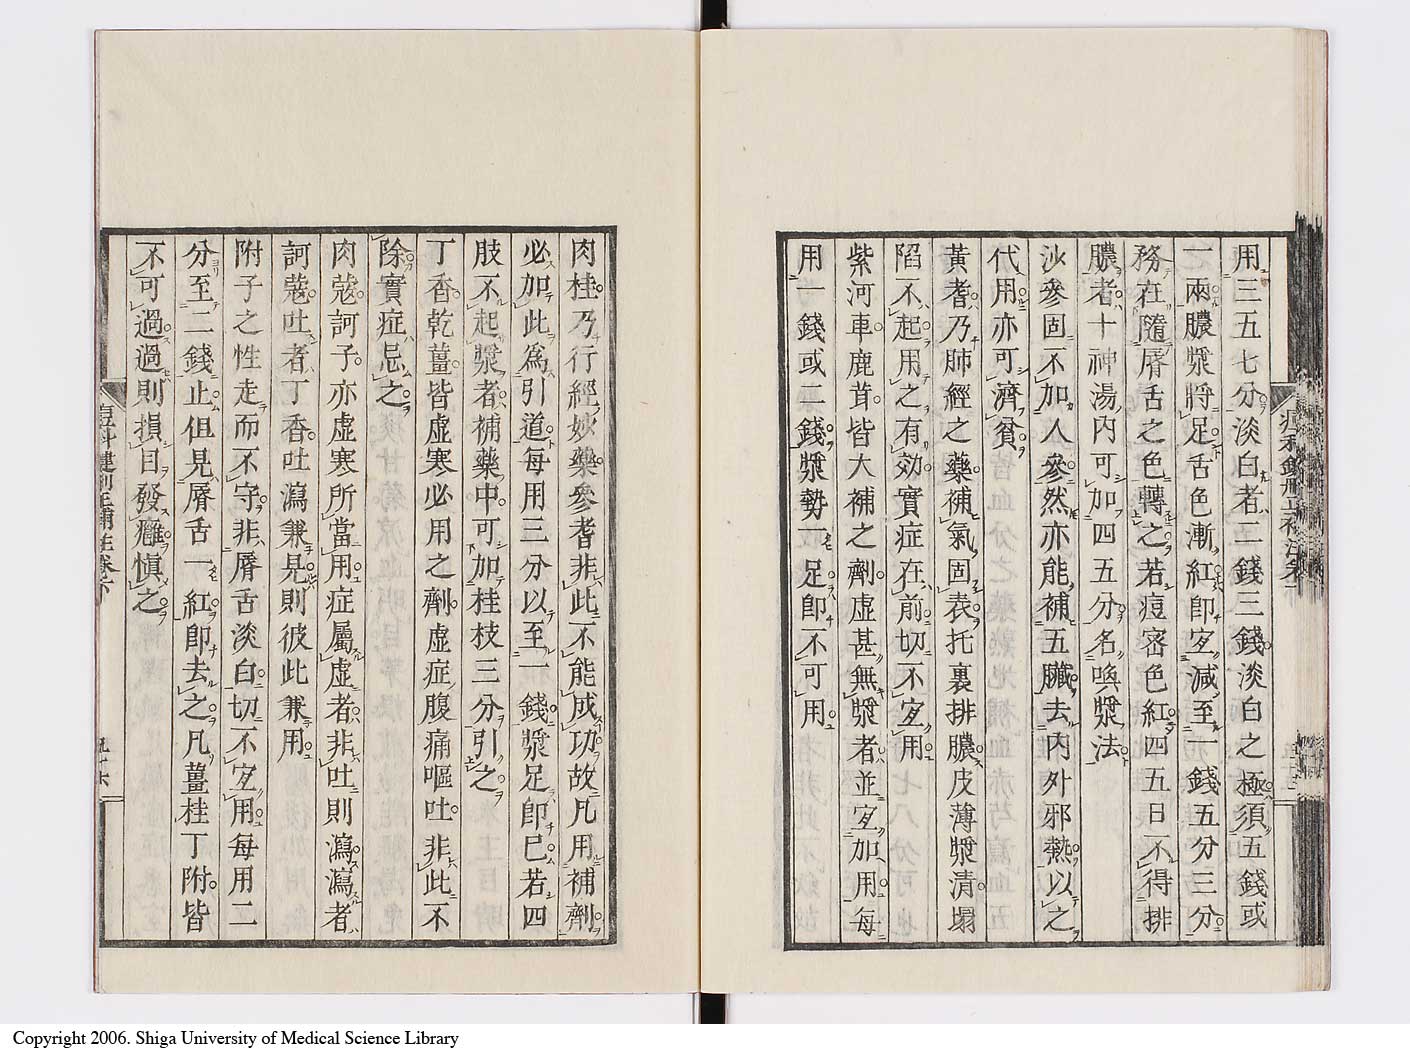 用三五七分淡白者二錢三錢淡白之極須五錢或
一兩膿漿將足舌色漸紅卽宐減至一錢五分三分
務在隨脣舌之色轉之若痘密色紅四五日不得排
膿者十神湯內可加四五分名喚漿法
沙參固不加人參然亦能補五臟去內外邪熱以之
代用亦可濟貧
黃耆乃肺經之藥補氣固表托裏排膿皮薄漿清塌
陷不起用之有効實症在前切不宐用
紫河車鹿茸皆大補之劑虛甚無漿者並宐加用每
用一錢或二錢漿勢一足卽不可用
肉桂乃行經妙藥參耆非此不能成功故凡用補劑
必加此爲引道每用三分以至一錢漿足卽已若四
肢不起漿者補藥中可加桂枝三分引之
丁香乾薑皆虛寒必用之劑虛症腹痛嘔吐非此不
除實症忌之
肉蔻訶子亦虛寒所當用症屬虛者非吐則瀉瀉者
訶蔻吐者丁香吐瀉兼見則彼此兼用
附子之性走而不守非脣舌淡白切不宐用每用二
分至二錢止但見脣舌一紅卽去之凡薑桂丁附皆
不可過過則損目發癰愼之
Copyright 2006. Shiga University of Medical Science Library